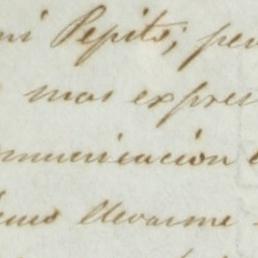 mi Pepito; per
mas expres
municacion
llevarme